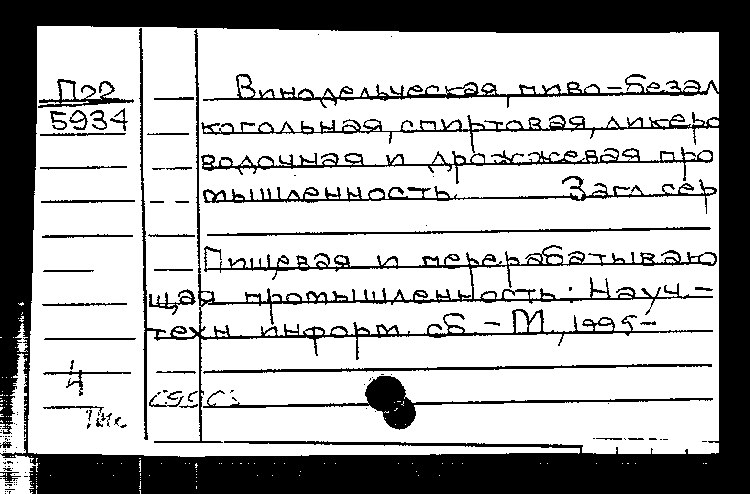 П99
5934
Винодельческая, пиво-безал
когольная, спиртовая, ликеро
водочная и дрожжевая про
мышленность. Загл. сер
Пищевая и перерабатываю
щая промышленность: Науч.-
техн. информ. сб. - М., 1995-
4